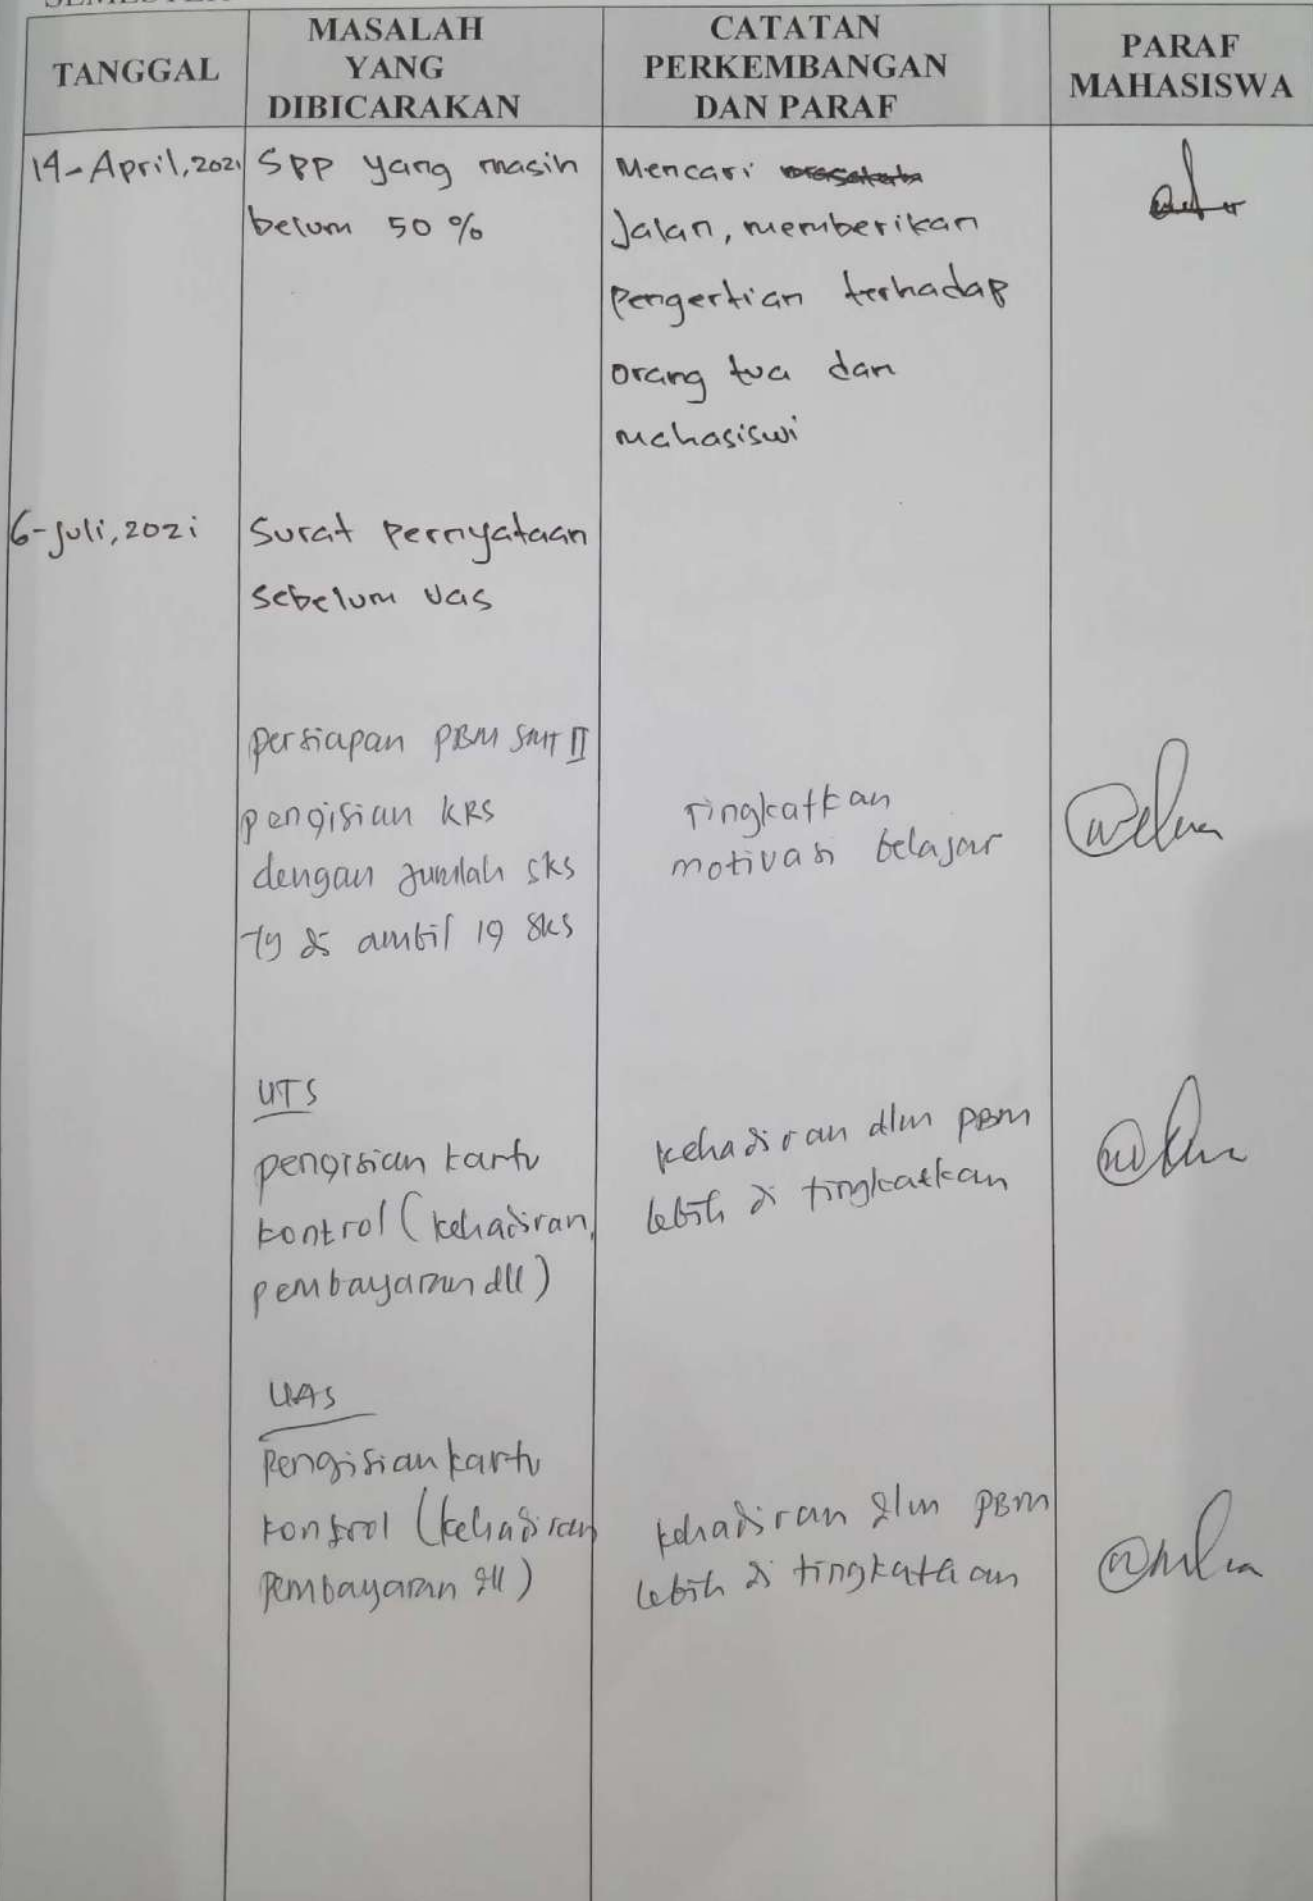 TANGGAL
MASALAH
YANG
DIBICARAKAN
CATATAN
PERKEMBANGAN
DAN PARAF
PARAF
MAHASISWA
14-April,2021
Spp yang masih
belum 50%
Mencari
Jalan, memberikan
pengertian terhadap
orang tua dan
mahasiswi
6-Juli,2021
Surat pernyataan
sebelum uas
persiapan PBM SMT II
pengisian KRS
dengan jumlah sks
yg di ambil 19 sks
Tingkatkan
motivasi belajar
UTS
pengisian kartu
kontrol (kehadiran,
pembayaran dll)
kehadiran dlm PBM
lebih di tingkatkan
UAS
Pengisian kartu
kontrol (kehadiran
pembayaran dll)
kehadiran dlm PBM
lebih di tingkatkan